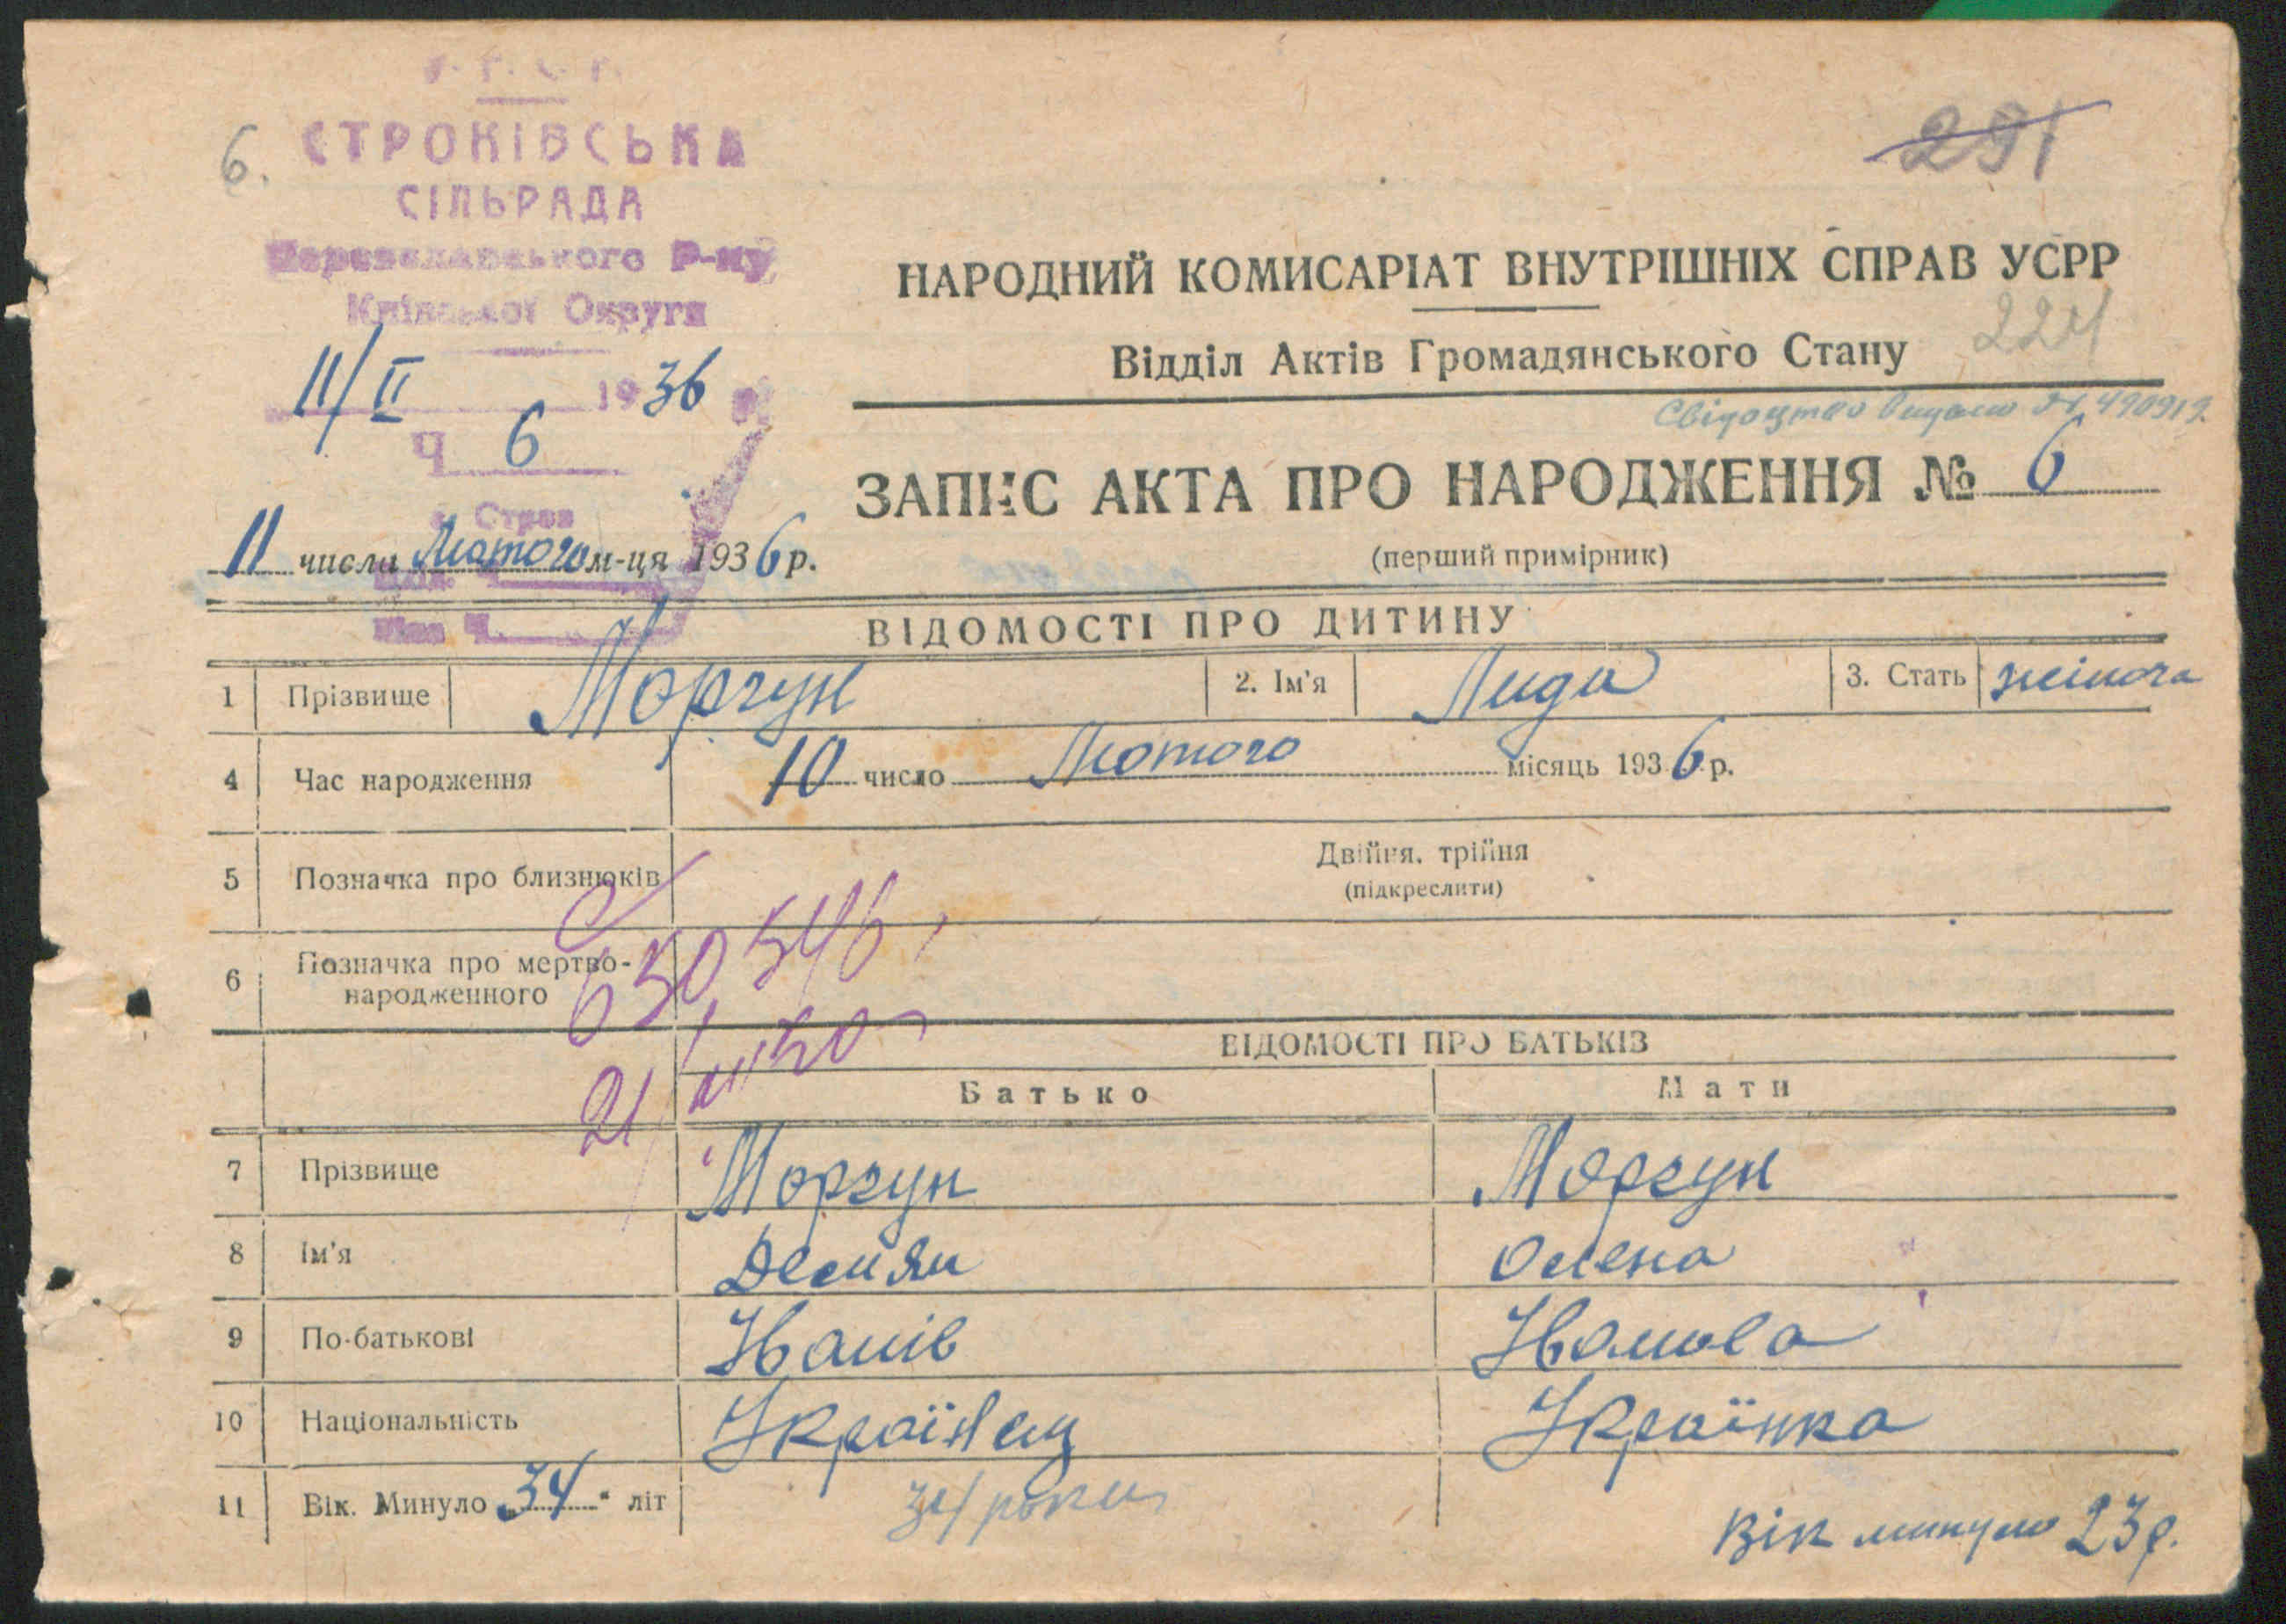 6.
СТРОКІВСЬКА
СІЛЬРАДА
Переяславського Р-ну
Київської Округи
11/II 1936 р
Ч 6
291
НАРОДНИЙ КОМИСАРІАТ ВНУТРІШНІХ СПРАВ УСРР
224
Відділ Актів Громадянського Стану
Свідоцтво видано 490919.
ЗАПИС АКТА ПРО НАРОДЖЕННЯ № 6
(перший примірник)
11 числа Лютого м-ця 1936 р.
ВІДОМОСТІ ПРО ДИТИНУ
1 Прізвище Моргун 2. Ім'я Лида 3. Стать жіноча
4 Час народження 10 число Лютого місяць 1936 р.
5 Позначка про близнюків Двійня, трійня
(підкреслити)
6 Позначка про мертво-
народженного
650546
21
ВІДОМОСТІ ПРО БАТЬКІВ
Батько Мати
7 Прізвище Моргун Моргун
8 Ім'я Демян Олена
9 По-батькові Іванів Іванова
10 Національність Українец Українка
11 Вік. Минуло „34" літ 34 роки Вік минуло 23 р.